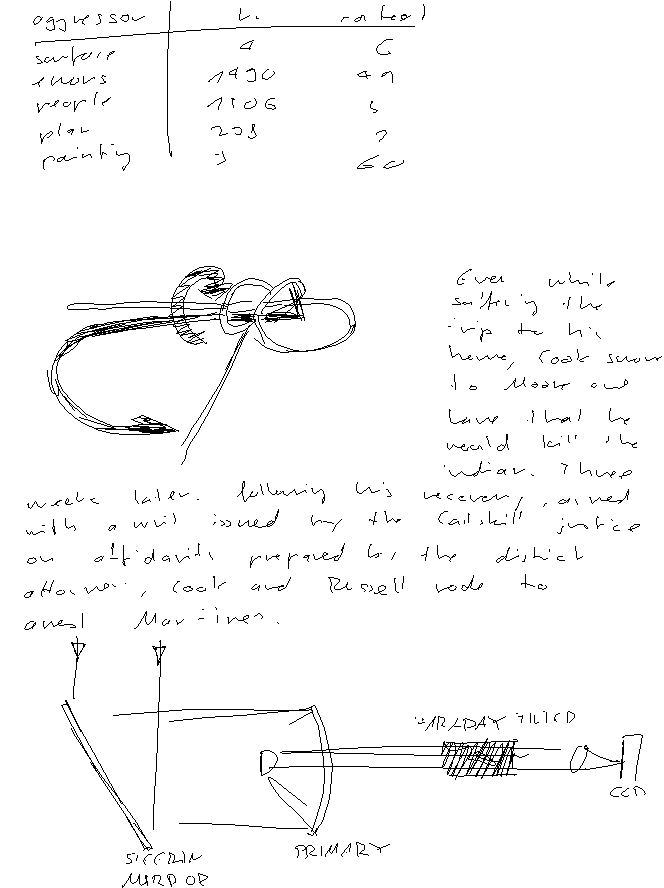 aggressor
surface 4 6
errors 1490 49
people
plan
painting 60
Even while
suffering the
trip to his
home, Cook swore
to Moore and
that he
would kill the
Indian. Three
weeks later. following his recovery, armed
with a writ issued by the Catskill justice
on affidavits prepared by the district
attorney, Cook and Russell rode to
arrest
PRIMARY
CCD